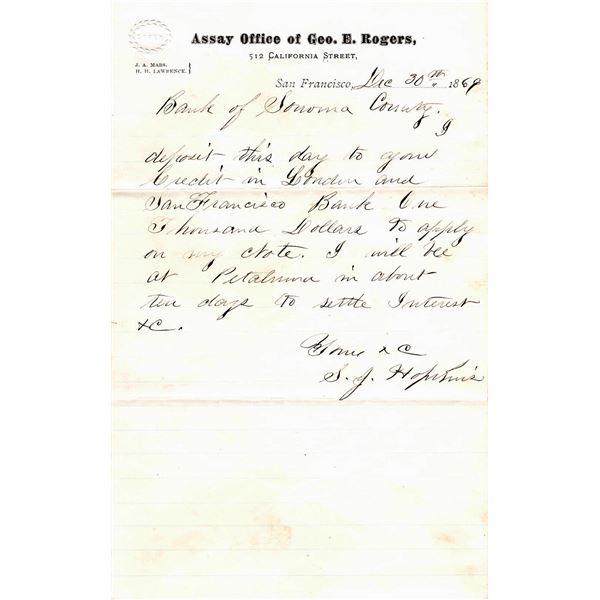 Assay Office of Geo. E. Rogers,
512 California Street,
J. A. Mars.
H. H. Lawrence.
San Francisco, Dec 30th 1869
Bank of Sonoma County.
I
deposit this day to your
Credit in London and
San Francisco Bank One
Thousand Dollars to apply
on my Note. I will be
at Petaluma in about
ten days to settle Interest
&c.
Yours &c
S. J. Hopkins